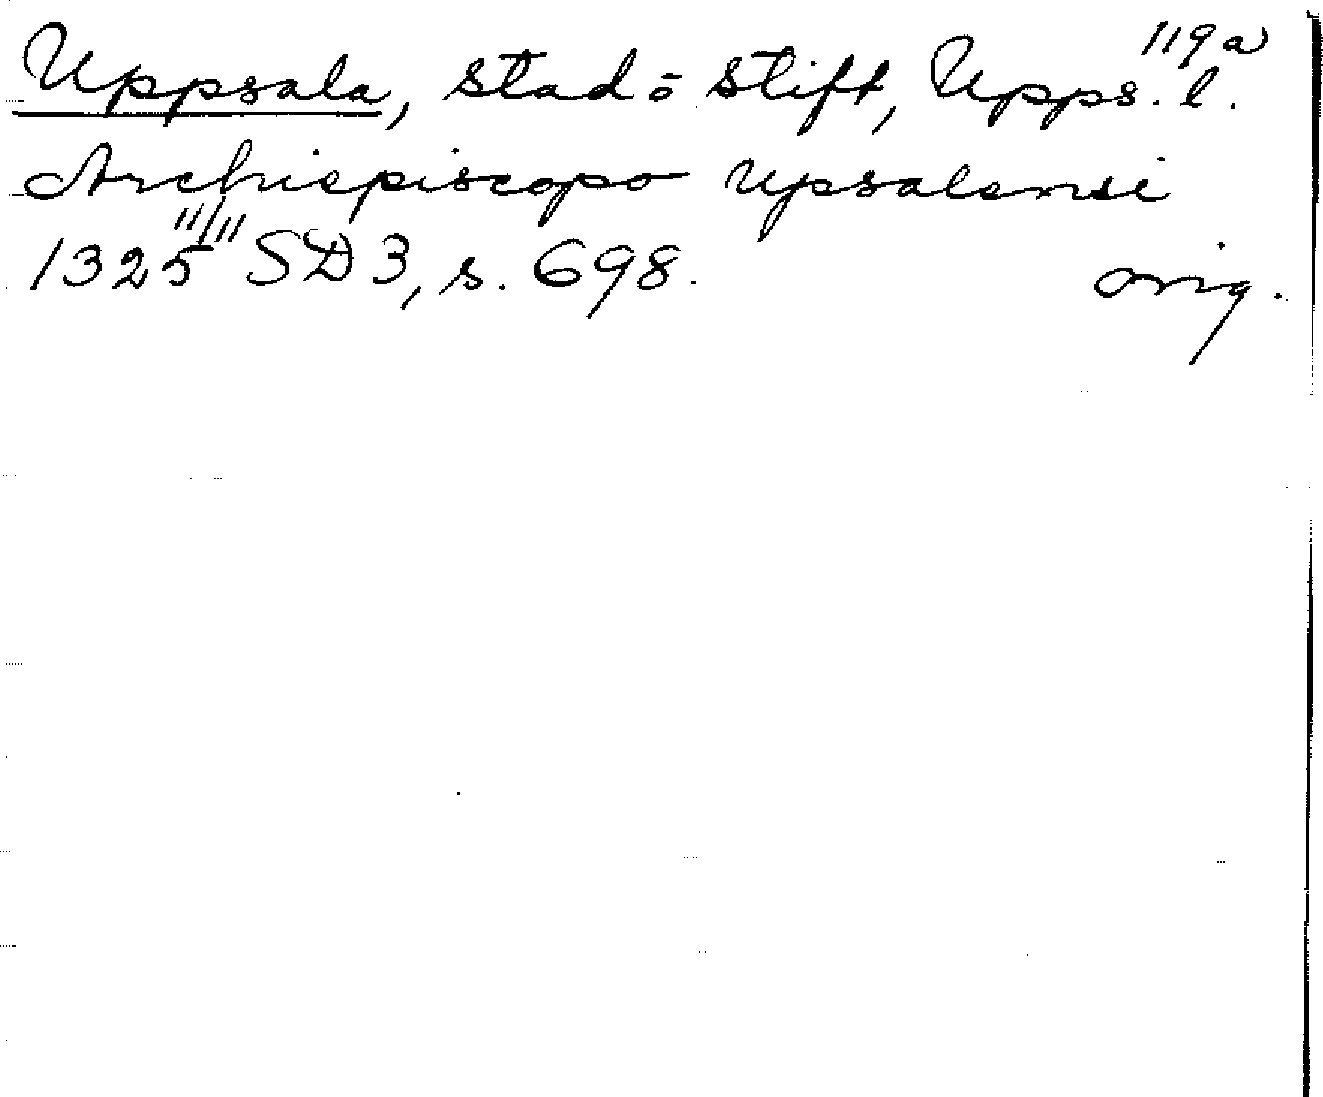 119a
Uppsala, stad o stift, Upps. l.
Archiepiscopo Upsalensi
1325 11/11 SD 3, s. 698. orig.